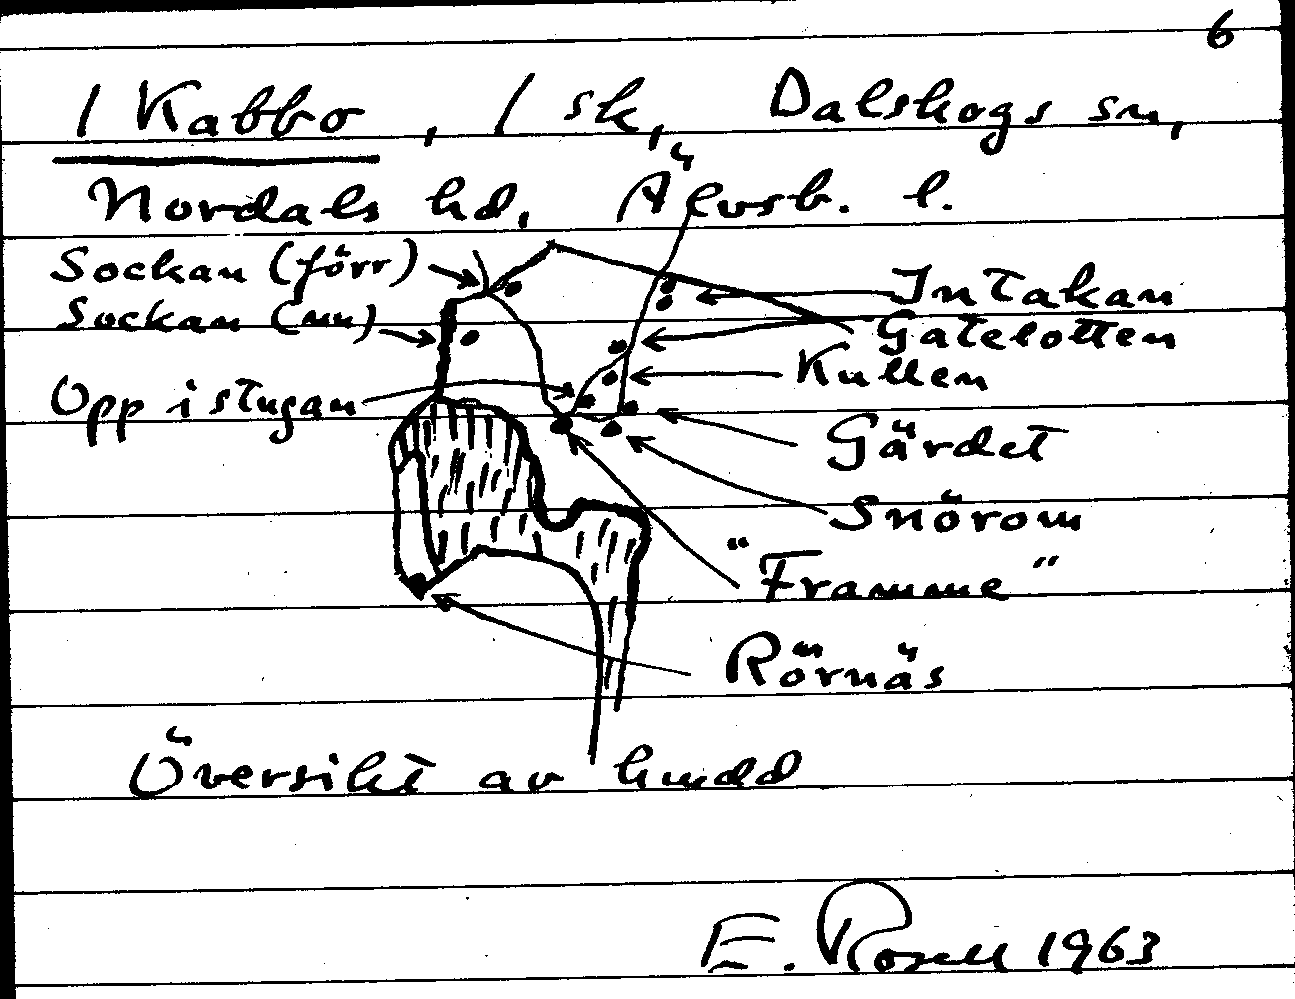 6
1 Kabbo, 1 sk, Dalskogs sn,
Nordals hd, Älvsb. l.
Sockan (förr)
Intakan
Sockan (nu)
Gatelotten
Kullen
Opp i stugan
Gärdet
Snörom
"Framme"
Rörnäs
Översikt av hmdd
E. Rosell 1963